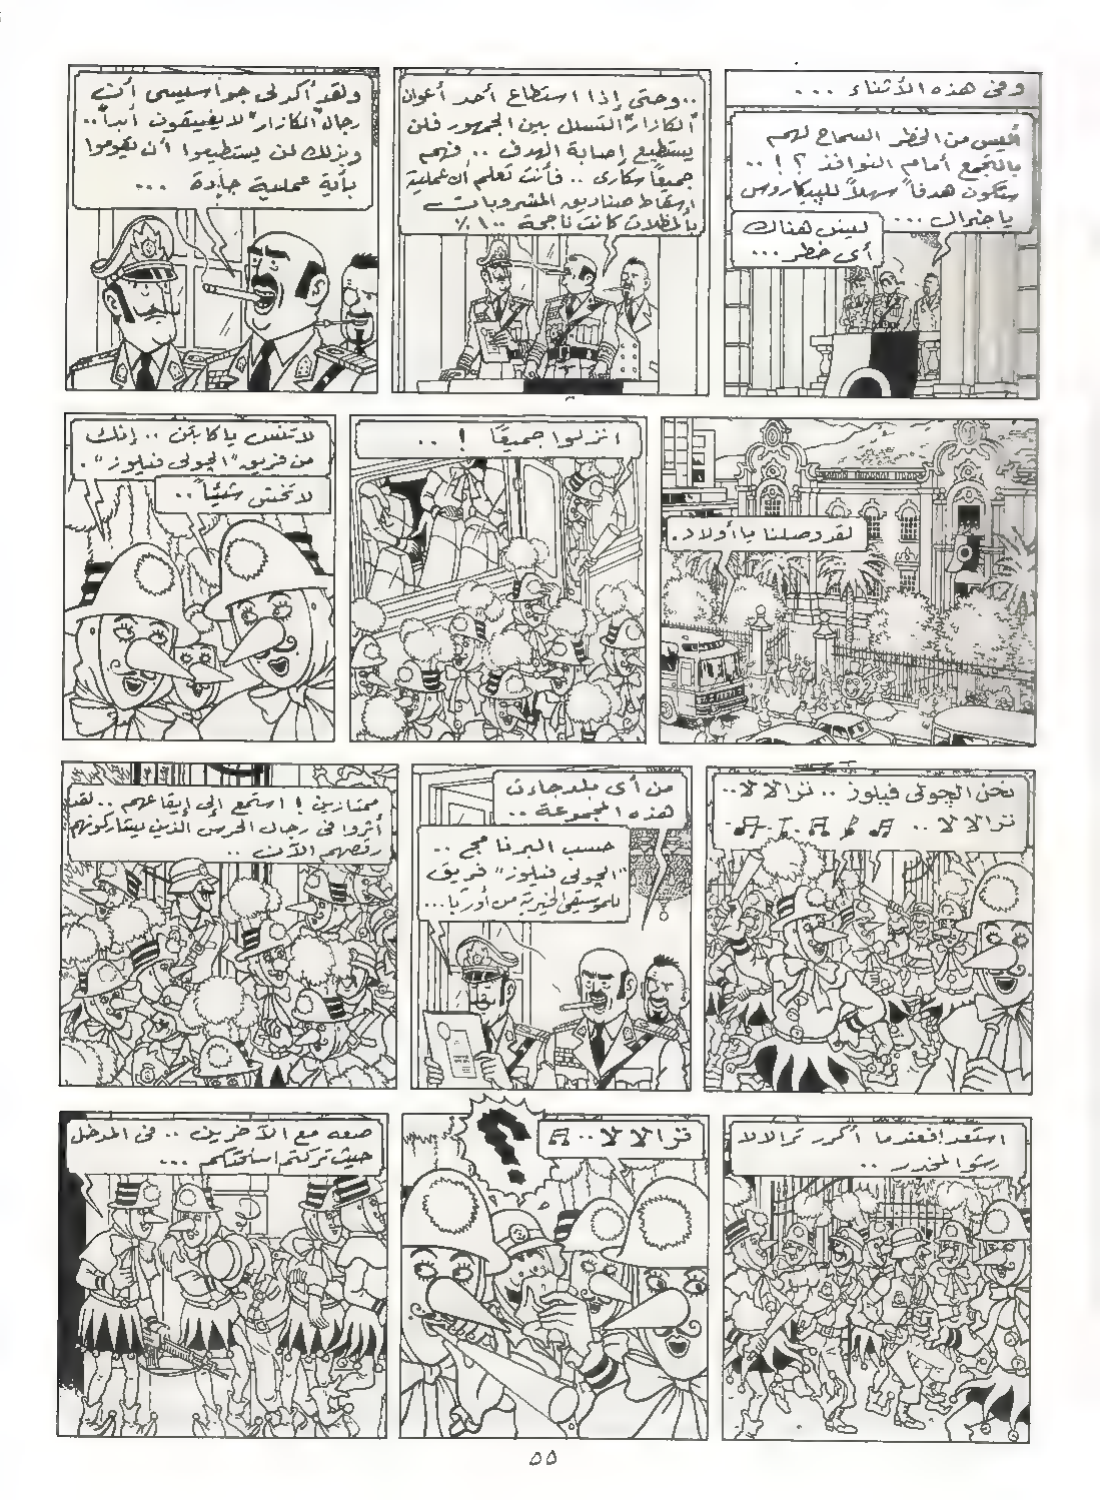 وفى هذه الأثناء ...
أليس من الخطر السماح لهم
بالتجمع أمام النوافذ ؟! ..
ستكون هدفاً سهلاً للبيكاروس
يا جنرال ...
ليس هناك
أى خطر ...
..وحتى إذا استطاع أحد أعوان
"ألكازار" التسلل بين الجمهور فلن
يستطيع إصابة الهدف .. فهم
جميعاً سكارى .. فأنت تعلم أن عملية
إسقاط صناديق المشروبات
بالمظلات كانت ناجحة ١٠٠ ٪
ولقد أكد لى جواسيسى أن
رجال "ألكازار" لا يفيقون أبداً ..
وبذلك لن يستطيعوا أن يقوموا
بأية عملية جادة ...
لقد وصلنا يا أولاد .
انزلوا جميعًا ! ..
لا تنس يا كابتن .. إنك
من فريق "الچولى فيلوز" .
لا تخش شيئاً ..
نحن الچولى فيلوز .. ترالالا ..
ترالالا ..
من أى بلد جاءت
هذه المجموعة ..
حسب البرنامج ..
"الچولى فيلوز" فريق
للموسيقى الخيرية من أوربا ...
ممتازين ! استمع إلى إيقاعهم .. لقد
أثروا فى رجال الحرس الذين يشاركونهم
رقصهم الآن ..
استعد ! فعندما أكرر ترالالا
رشوا المخدر ..
ترالالا ..
?
ضعه مع الآخرين .. فى المدخل
حيث تركتم أسلحتكم ...
٥٥